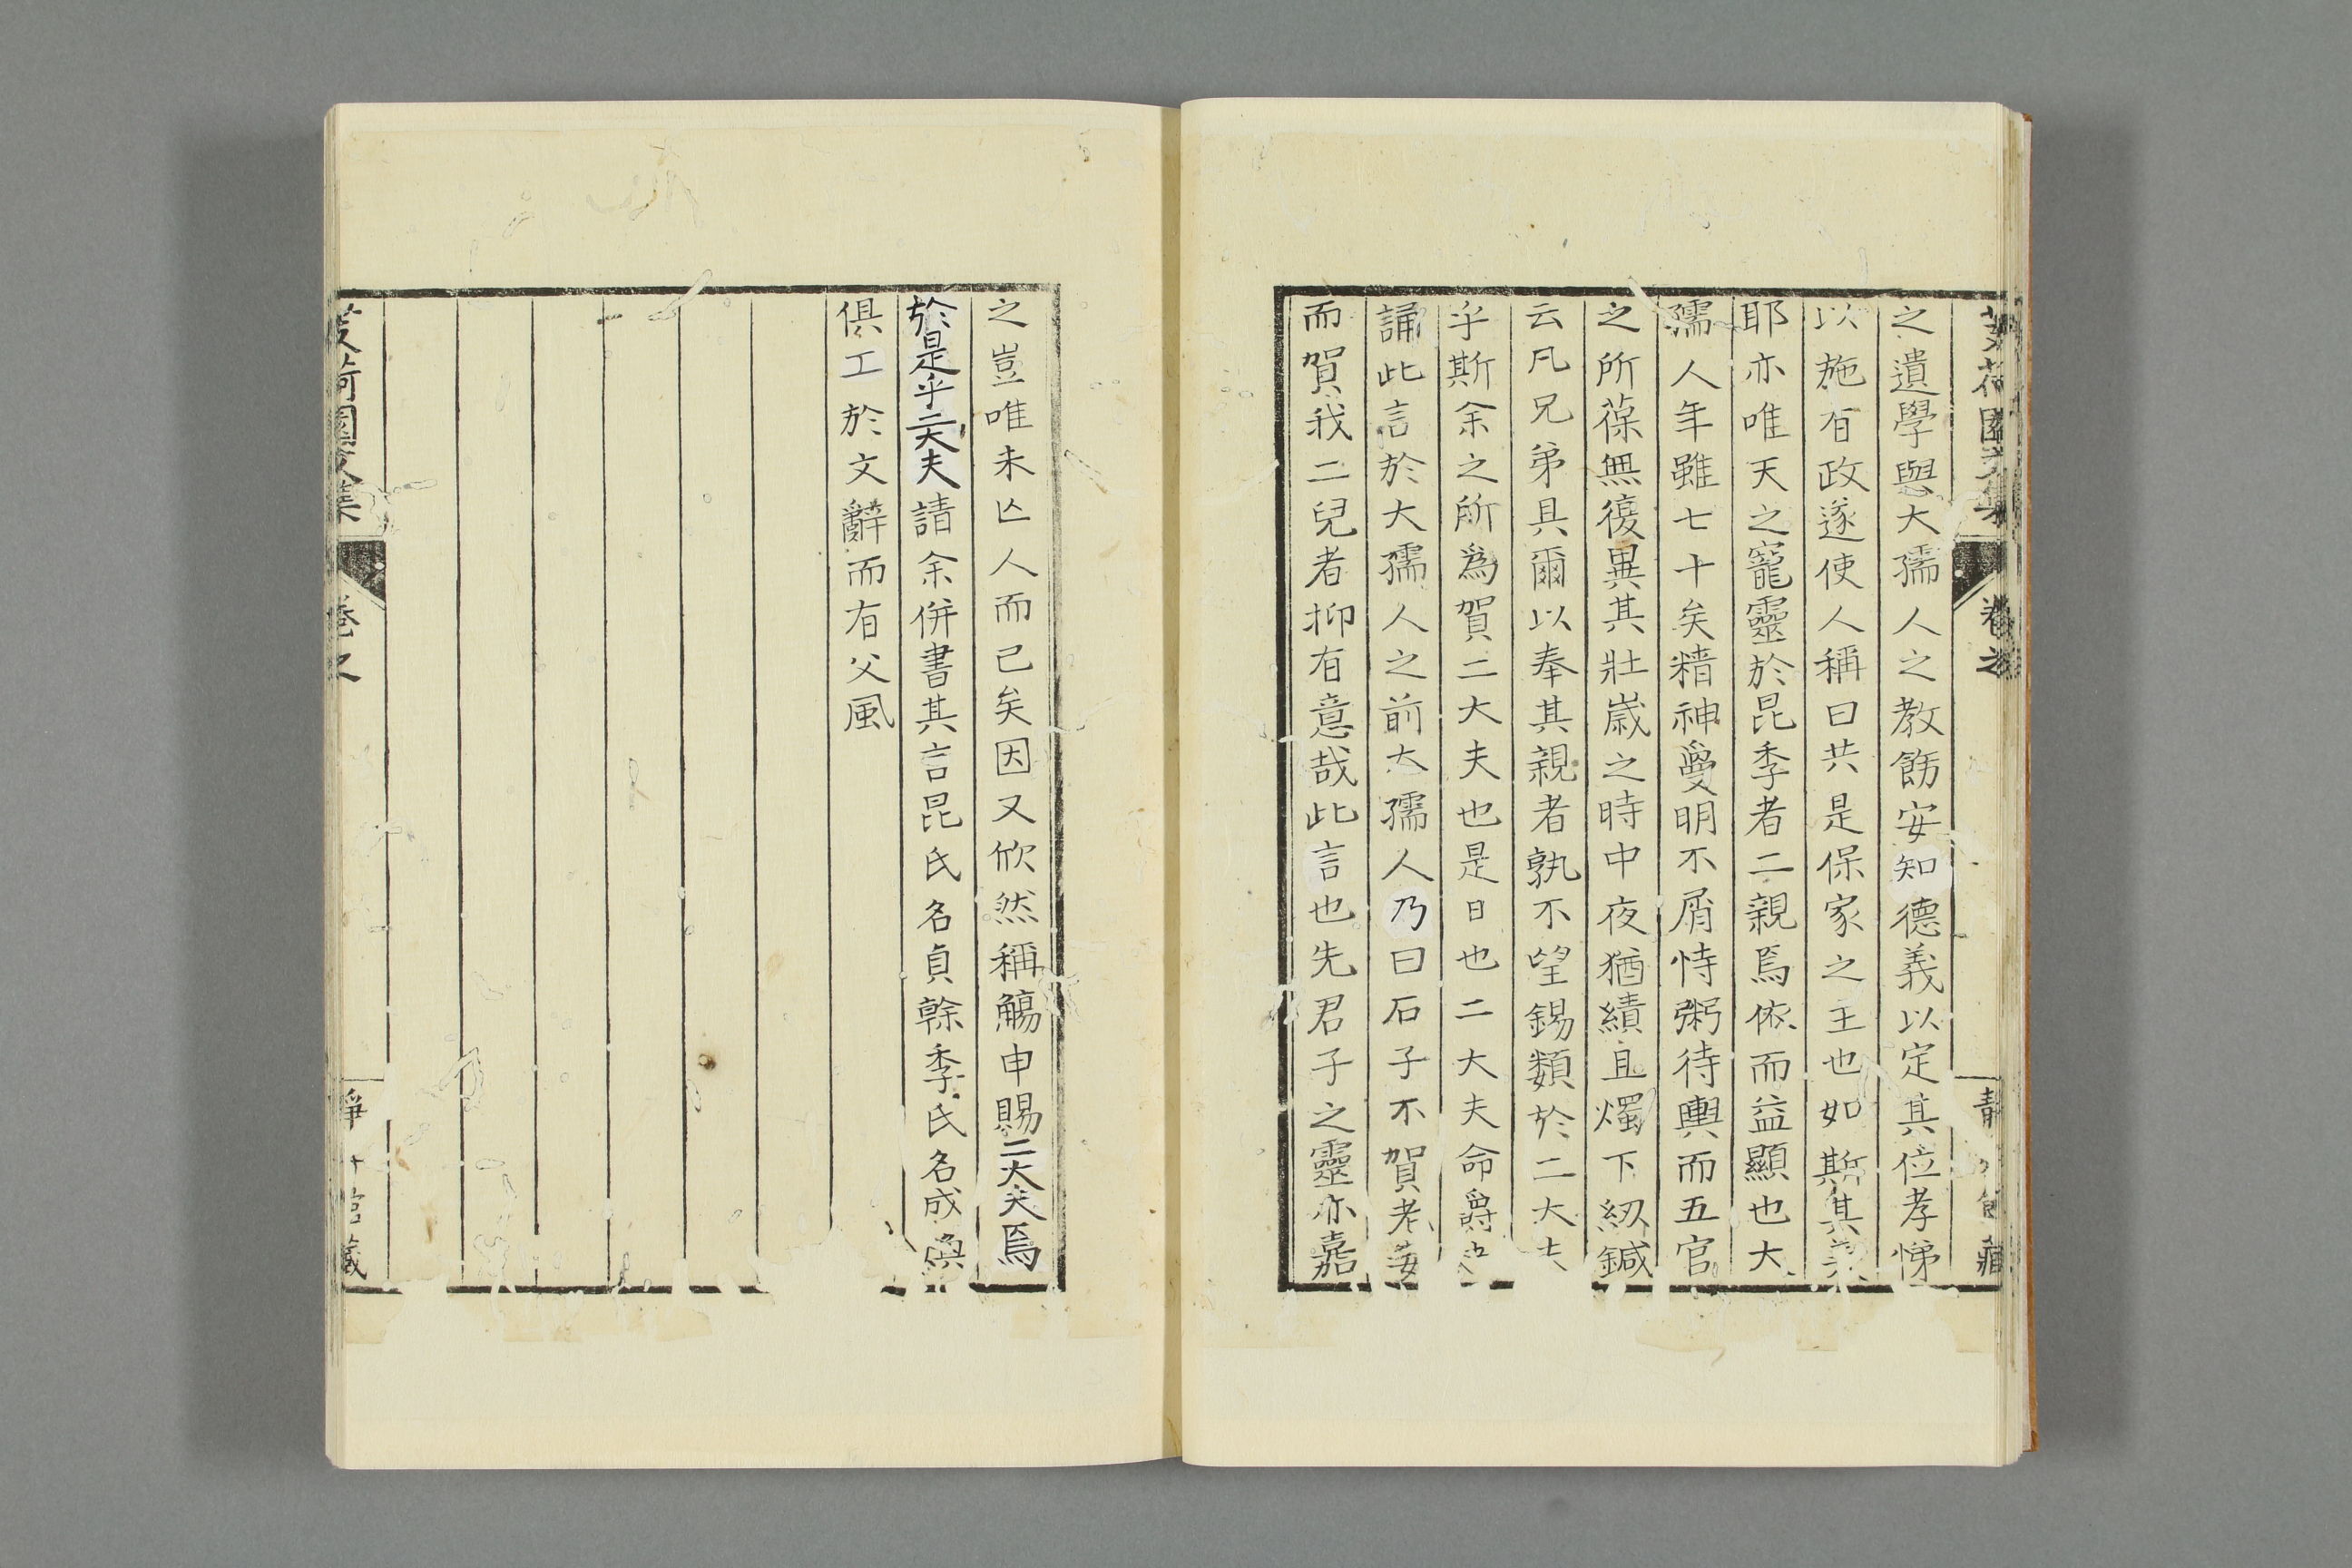 芰荷園文集
卷之
靜 館藏
之遺學與大孺人之教飭安知德義以定其位孝悌
以施有政遂使人稱曰共是保家之主也如斯其
耶亦唯天之寵靈於昆季者二親焉依而益顯也大
孺人年雖七十矣精神夐明不屑恃粥待輿而五官
之所葆無復異其壯歲之時中夜猶績且燭下紉鍼
云凡兄弟具爾以奉其親者孰不望錫類於二大夫
乎斯余之所爲賀二大夫也是日也二大夫命爵
誦此言於大孺人之前大孺人乃曰石子不賀老妾
而賀我二兒者抑有意哉此言也先君子之靈亦嘉
之豈唯未亡人而已矣因又欣然稱觴申賜二大夫焉
於是乎二大夫請余併書其言昆氏名貞榦季氏名成煥
俱工於文辭而有父風
芰荷園文集
卷之
靜 館藏